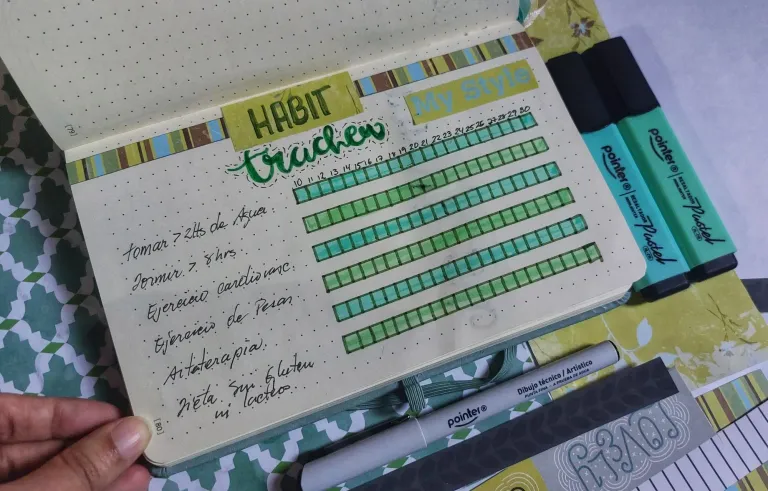 [79]
HABIT
tracker
My Style
10 11 12 13 14 15 16 17 18 19 20 21 22 23 24 25 26 27 28 29 30
Tomar > 2Lts de Agua
Dormir > 8 hrs.
Ejercicio cardiovasc.
Ejercicio de Pesas
Artoterapia.
Dieta Sin Gluten
ni lacteos.
[80]
pointer®
Pastel
pointer®
Pastel
pointer®
Dibujo técnico / Artístico
LOVELY